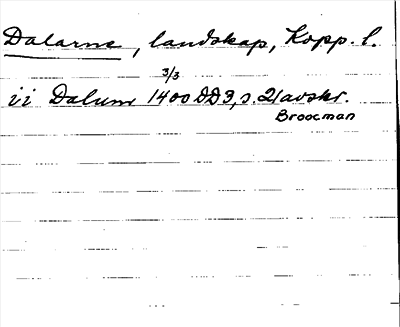 Dalarne, landskap, Kopp. l.
3/3
ii Dalum 1400 DD 3, s. 21 avskr.
Broocman